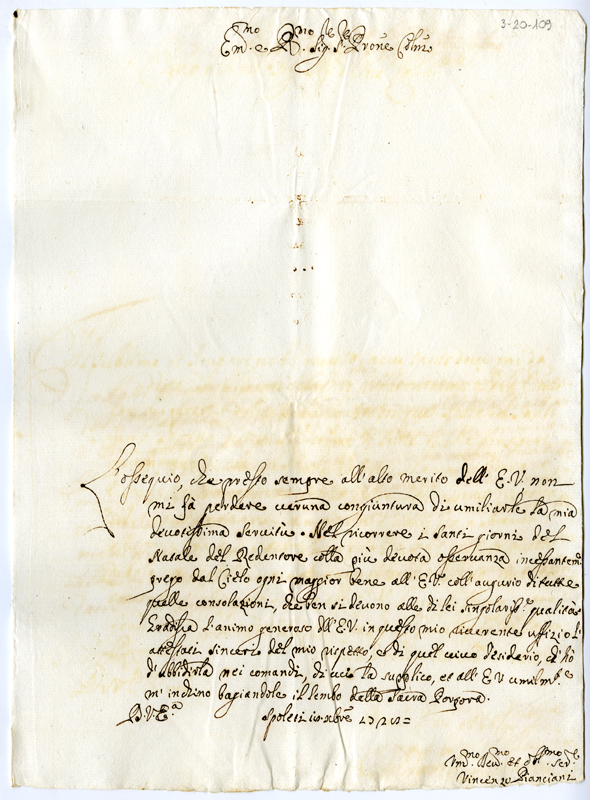 3-20-109
Em.mo e R.mo Sig.re Sig.re Prone Colmo
L'ossequio, che presto sempre all'alto merito dell'E.V. non
mi fà perdere veruna congiuntura di umiliarle la mia
devotissima servitù. Nel ricorrere i Santi giorni del
Natale del Redentore colla più devota osservanza incessantem.e
prego dal Cielo ogni maggior bene all'E.V. coll'augurio di tutte
quelle consolazioni, che ben si devono alle di lei singolariss.e qualità
Gradisca l'animo generoso dell'E.V. in questo mio riverente uffizio gl'
attestati sinceri del mio rispetto, e di quel vivo desiderio, ch'hò
d'ubbidirla nei comandi, di cui la supplico, et all'E.V. umilm.e
m'inchino baciandole il lembo della Sacra Porpora.
D.V.E.a
Spoleti
Vincenzo Pianciani